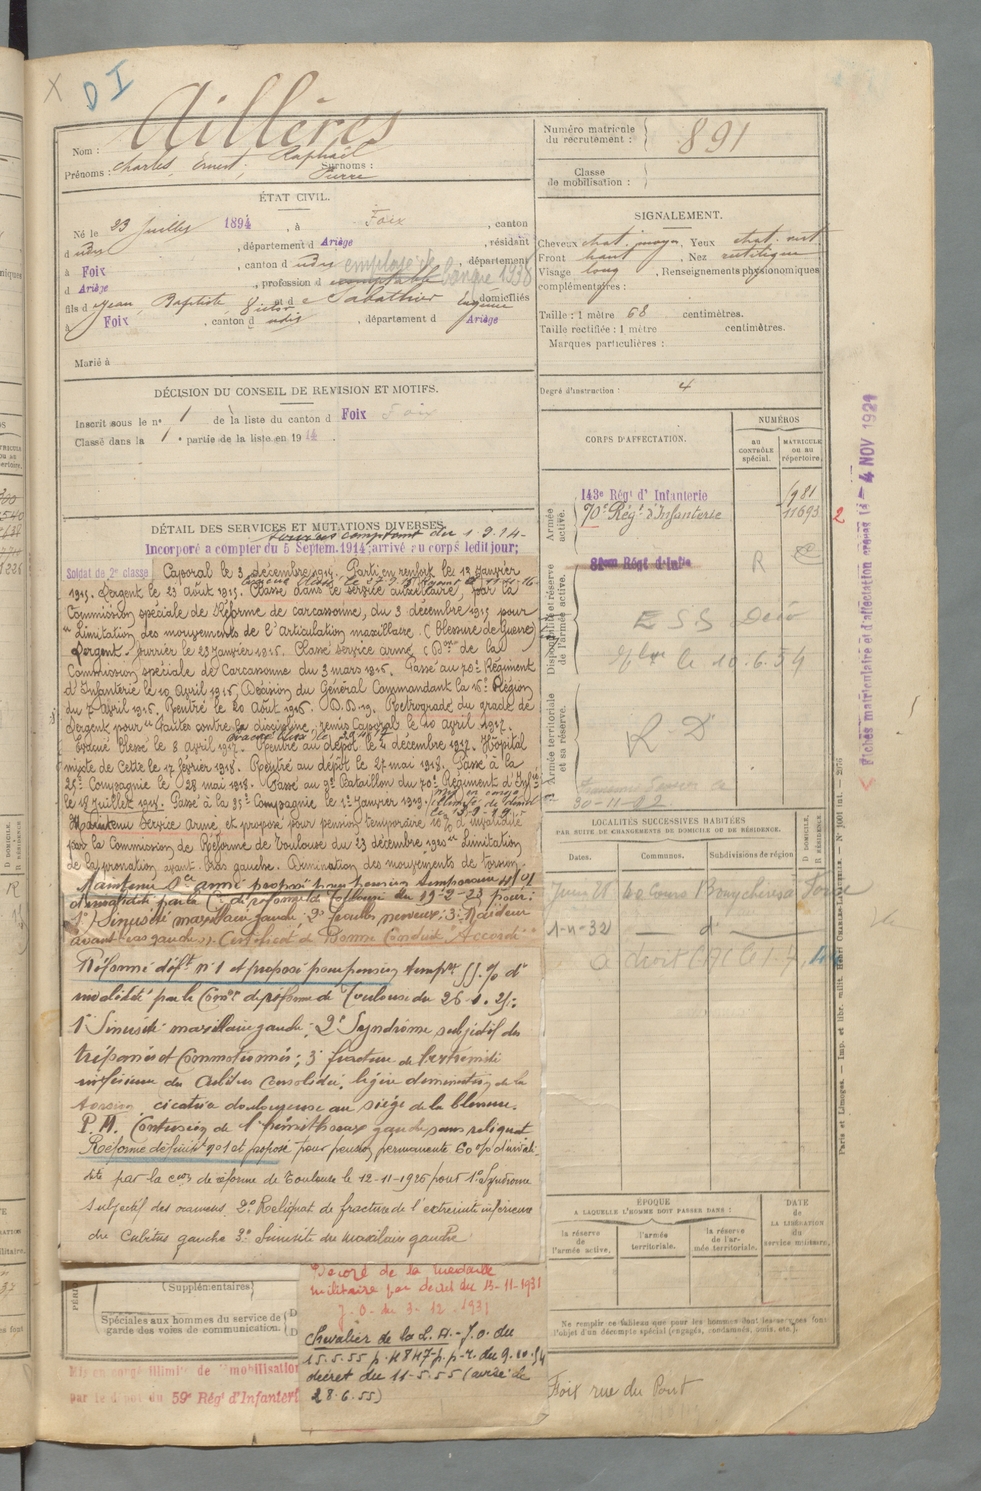 X
D I
Aillères
Nom :
Prénoms : Charles, Ernest, Raphaël Surnoms :
Pierre
Numéro matricule
du recrutement :
891
Classe
de mobilisation :
ÉTAT CIVIL.
Né le 23 Juillet 1894, à Foix, canton
d udit, département d Ariège, résidant
à Foix, canton d udit employé de, département
d Ariège, profession d comptable banque 1938
fils d Jean, Baptiste, Victor et d e Sabathier Eugénie domiciliés
à Foix, canton d udit, département d Ariège
Marié à
SIGNALEMENT.
Cheveux chat. moyen, Yeux chat.
Front haut, Nez rectiligne
Visage long, Renseignements physionomiques
complémentaires :
Taille : 1 mètre 68 centimètres.
Taille rectifiée : 1 mètre centimètres.
Marques particulières :
Degré d'instruction : 4
DÉCISION DU CONSEIL DE REVISION ET MOTIFS.
Inscrit sous le n° 1 de la liste du canton d Foix Foix
Classé dans la 1e partie de la liste en 1914.
DÉTAIL DES SERVICES ET MUTATIONS DIVERSES.
Services comptant du 1.9.14.
Incorporé à compter du 5 Septem. 1914; arrivé au corps ledit jour;
Soldat de 2e classe Caporal le 3 décembre 1914. Parti en renfort le 12 Janvier
1915. Sergent le 23 août 1915. Classé dans le service auxiliaire, par la
Commission spéciale de Réforme de Carcassonne, du 3 décembre 1915 pour
"Limitation des mouvements de l'articulation maxillaire. (Blessure de Guerre)
Sergent-fourrier le 23 Janvier 1916. Classé Service armé (Don de la
Commission spéciale de Carcassonne du 3 mars 1916. Passé au 70e Régiment
d'Infanterie le 10 Avril 1916, Décision du Général Commandant la 16e Région
du 7 Avril 1916. Rentré le 20 Août 1916. Rétrogradé du grade de
Sergent pour "Fautes contre la discipline, remis Caporal le 20 avril 1917.
Évacué blessé le 8 Avril 1917. Rentré au dépôt le 4 décembre 1917. Hôpital
mixte de Cette le 17 février 1918. Rentré au dépôt le 27 mai 1918. Passé à la
25e Compagnie le 28 mai 1918. Passé au 9e Bataillon du 70e Régiment d'Infrie
le 18 Juillet 1918. Passé à la 35e Compagnie le 1er Janvier 1919.
Maintenu Service Armé, et proposé pour pension temporaire 10% d'invalidité
par la Commission de Réforme de Toulouse du 23 décembre 1920 "Limitation
de la pronation avant-bras gauche. Diminution des mouvements de torsion.
Maintenu Sce armé proposé pour pension temporaire
d'invalidité par la Con de réforme de Toulouse du 19-2-23 pour:
1° Sinusite maxillaire gauche; 2° troubles nerveux; 3° Raideur
avant-bras gauche". Certificat de Bonne Conduite "Accordé"
Réformé déft n°1 et proposé pour pension tempre 55% d'
invalidité par la Comon de réforme de Toulouse du 26.1.25:
1° Sinusite maxillaire gauche; 2° Syndrôme subjectif des
trépanés et commotionnés; 3° fracture de l'extrémité
inférieure du cubitus consolidée, légère diminution de la
torsion, cicatrice douloureuse au siège de la blessure.
P.M. Contusion de l'hémithorax gauche sans reliquat
Réformé définitif n°1 et proposé pour pension permanente 60% d'invali-
dité par la con de réforme de Toulouse le 12-11-1926 pour 1° Syndrome
subjectif des craniens 2° Reliquat de fracture de l'extrémité inférieure
du cubitus gauche 3° Sinusite du maxillaire gauche
CORPS D'AFFECTATION.
NUMÉROS
AU CONTRÔLE spécial.
MATRICULE OU AU répertoire.
Armée active.
143e Régt d'Infanterie
70e Rég. d'Infanterie
11693
2
Disponibilité et réserve de l'armée active.
R
le 10.6.54
Armée territoriale et sa réserve.
R D
30-11-22
Fiches matriculaire et d'affectation 4 NOV 1921
LOCALITÉS SUCCESSIVES HABITÉES
PAR SUITE DE CHANGEMENTS DE DOMICILE OU DE RÉSIDENCE.
Dates.
Communes.
Subdivisions de région
D DOMICILE,
R RÉSIDENCE
Juin 28
1-11-32
d°
ÉPOQUE
A LAQUELLE L'HOMME DOIT PASSER DANS :
la réserve de l'armée active,
l'armée territoriale.
la réserve de l'armée territoriale.
DATE de LA LIBÉRATION du service militaire.
Ne remplir ce tableau que pour les hommes dont les services font
l'objet d'un décompte spécial (engagés, condamnés, omis, etc.).
Paris et Limoges. — Imp. et libr. milit. Henri CHARLES-LAVAUZELLE. — N° 1001 Int. — 2076
(Supplémentaires)
Spéciales aux hommes du service de
garde des voies de communication.
Décoré de la médaille
militaire par décret du 13-11-1931
J.O. du 3-12-1931
Chevalier de la L.H. - J.O. du
15.5.55 p. 4847 p.p.r. du 9.10.54
décret du 11-5-55 (avisé le
28.6.55)
Mis en congé illimité de démobilisation
par le dépôt du 59e Régt d'Infanterie
Foix rue du Pont